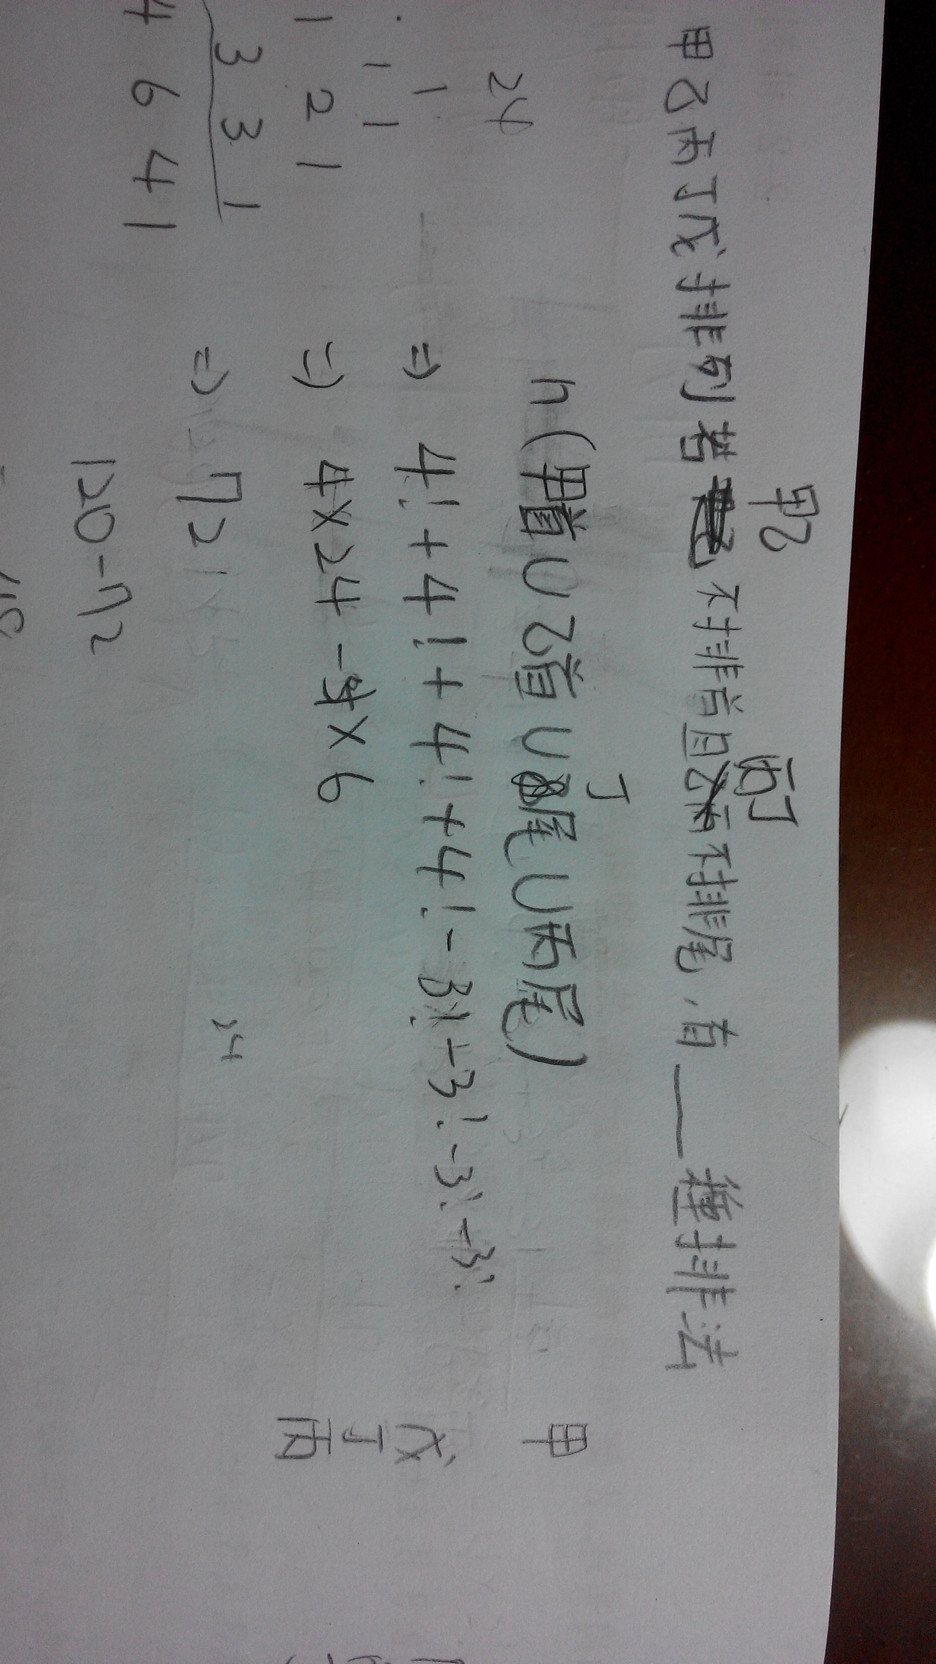 甲乙
丙丁
甲乙丙丁戊排列若不排首且不排尾,有___種排法
丁
n(甲首∪乙首∪尾∪丙尾)
⇒ 4!+4!+4!+4!-3!+3!-3!-3!
⇒ 4×24-4×6
⇒ 72
120-72
24
1
1 1
1 2 1
3 3 1
4 6 4 1
24
甲
戊
丁
丙